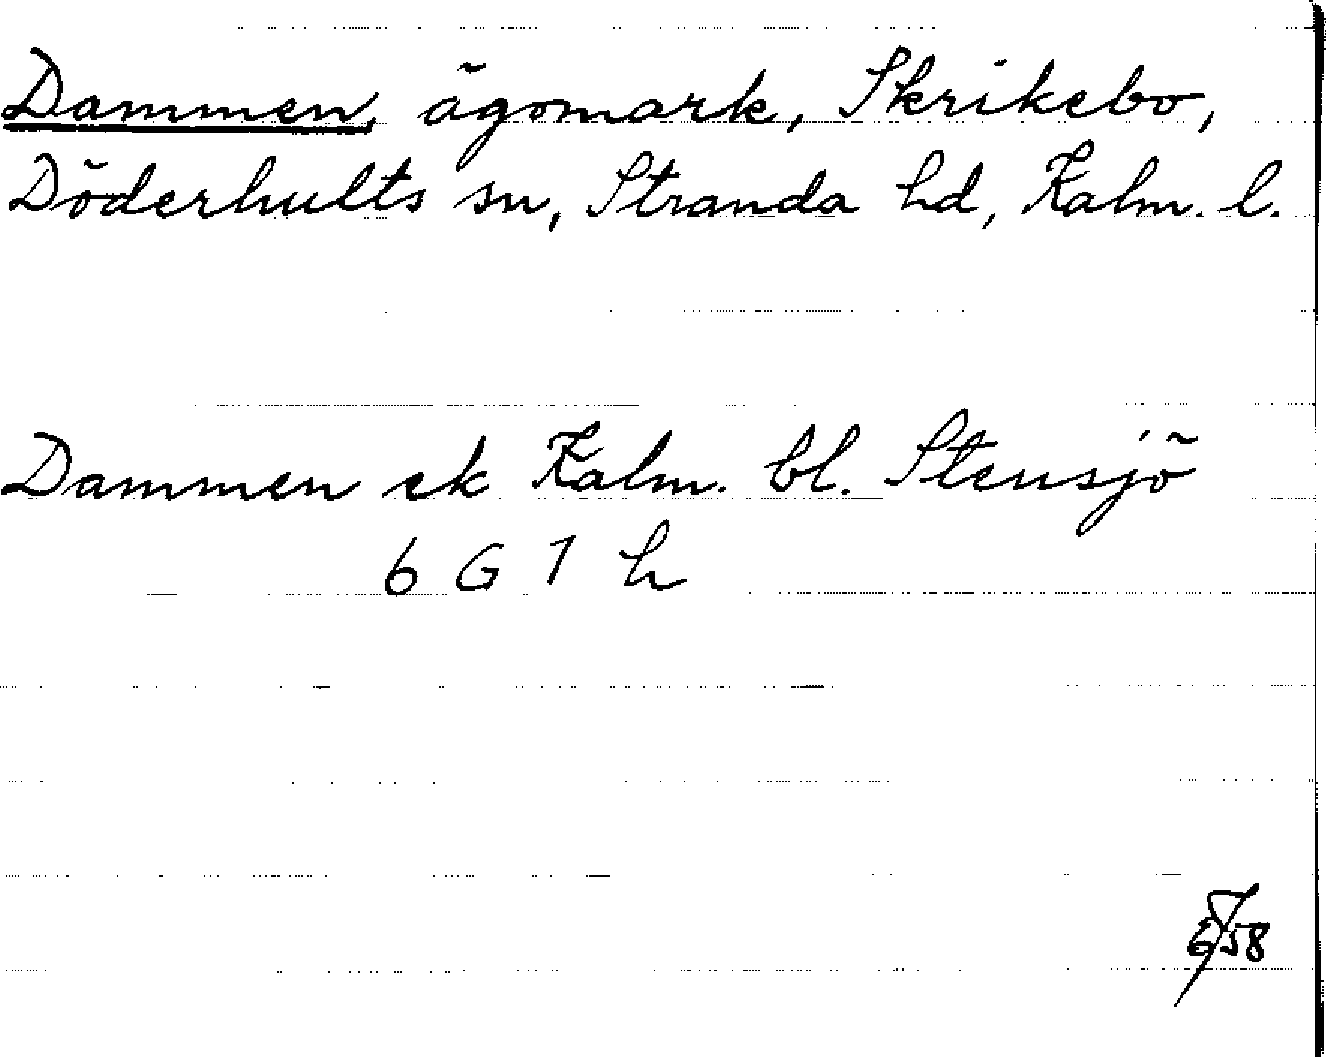 Dammen, ägomark, Skrikebo,
Döderhults sn, Stranda hd, Kalm. l.
Dammen ek Kalm. bl. Stensjö
6 G 1 h
58